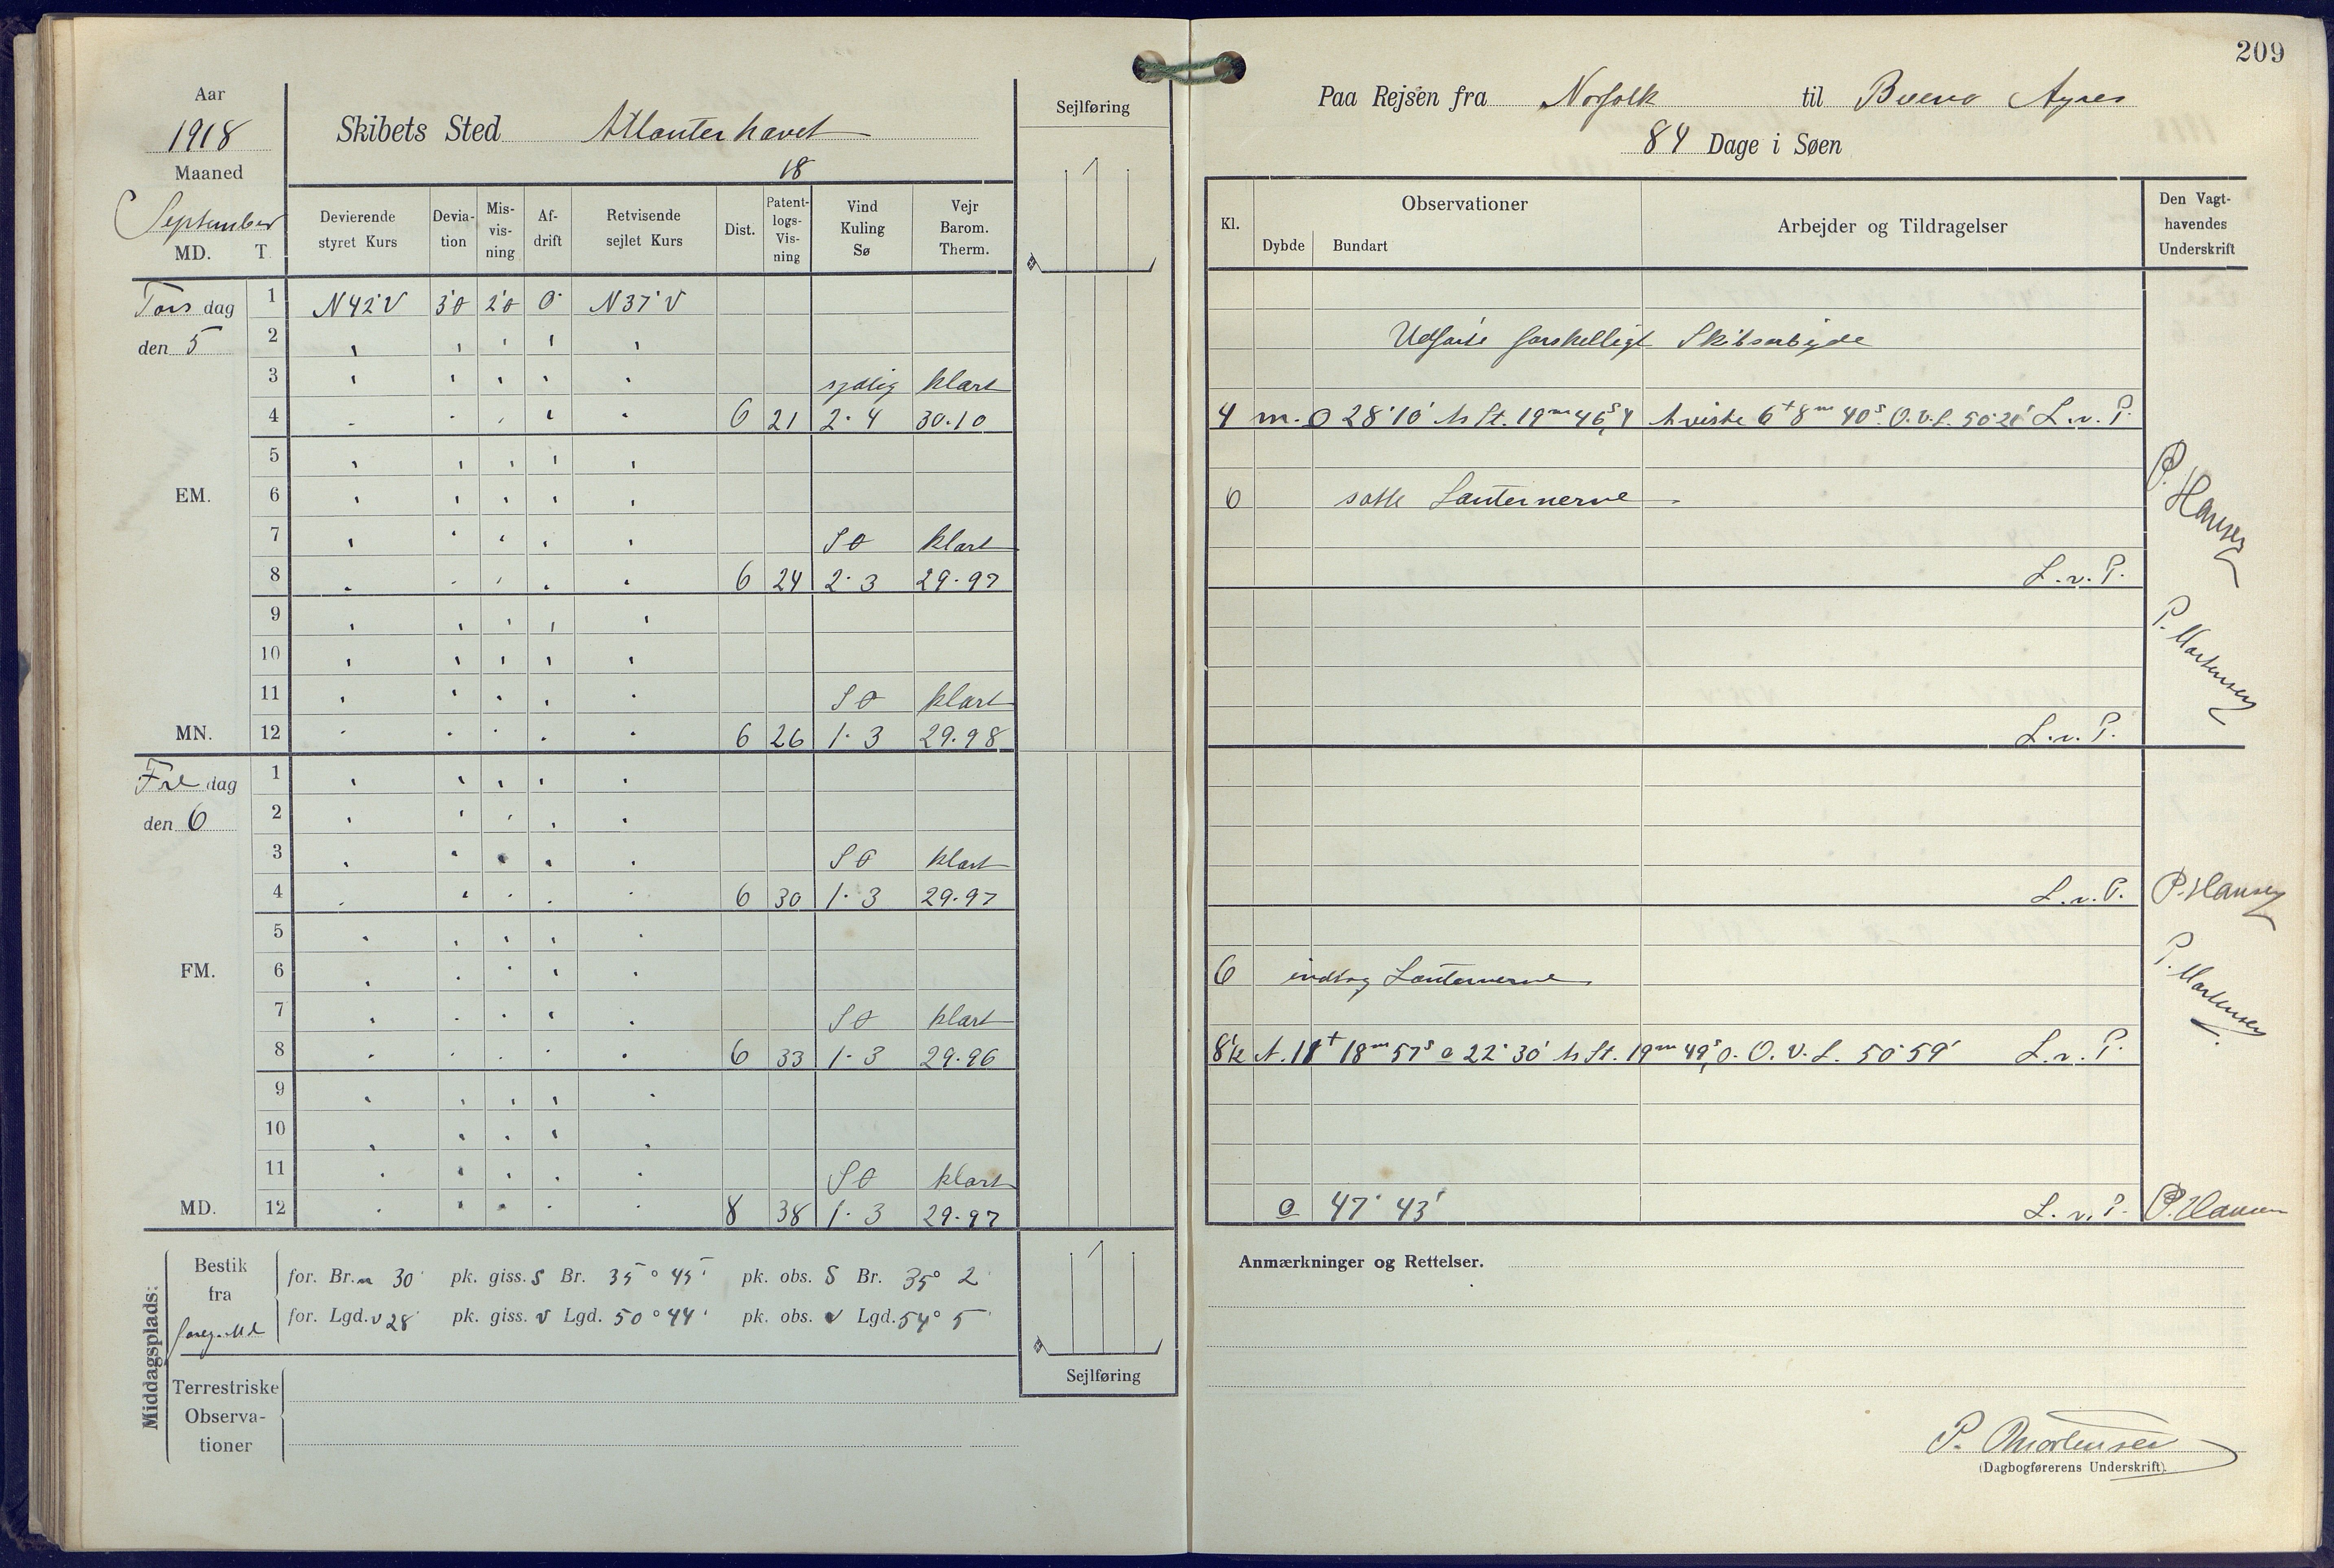 209
Aar
1918
Maaned
September
MD. T.
Skibets Sted Atlanterhavet
18
Sejlføring
Devierende styret Kurs Deviation Misvisning Afdrift Retvisende sejlet Kurs Dist. Patentlogs-Visning Vind Kuling Sø Vejr Barom. Therm.
Torsdag den 5
1 N 42° V 3° Ø 2° Ø 0° N 37° V
2 " " " " "
3 " " " " " sydlig klart
4 " " " " " 6 21 2·4 30.10
5 " " " " "
EM. 6 " " " " "
7 " " " " " SØ klart
8 " " " " " 6 24 2·3 29.97
9 " " " " "
10 " " " " "
11 " " " " " SØ klart
MN. 12 " " " " " 6 26 1·3 29.98
Fredag den 6
1 " " " " "
2 " " " " "
3 " " " " " SØ klart
4 " " " " " 6 30 1·3 29.97
5 " " " " "
FM. 6 " " " " "
7 " " " " " SØ klart
8 " " " " " 6 33 1·3 29.96
9 " " " " "
10 " " " " "
11 " " " " " SØ klart
MD. 12 " " " " " 8 38 1·3 29.97
Middagsplads:
Bestik fra
for. Br. n 30' pk. giss. S Br. 35° 45' pk. obs. S Br. 35° 2'
for. Lgd. v 28' pk. giss. v Lgd. 50° 44' pk. obs. v Lgd. 54° 5'
Terrestriske Observationer
Sejlføring
Paa Rejsen fra Norfolk til Bueno Ayres
84 Dage i Søen
Kl. Observationer Arbejder og Tildragelser Den Vagthavendes Underskrift
Dybde Bundart
Udførte forskelligt Skibsarbejde
4 m. O 28° 10' St. 19m 46s,4 A viste 6t 8m 40s. O.V.L. 50° L.v.P.
P. Hansen
6 satte Lanternerne
L.v.P.
P. Mortensen
L.v.P.
L.v.P. P. Hansen
6 indtog Lanternerne
P. Mortensen
8½ A. 11t 18m 57s o 22° 30' St. 19m 49s,0. O.V.L. 50° 59' L.v.P.
o 47° 43' L.v.P. P. Hansen
Anmærkninger og Rettelser.
P. Mortensen
(Dagbogførerens Underskrift).